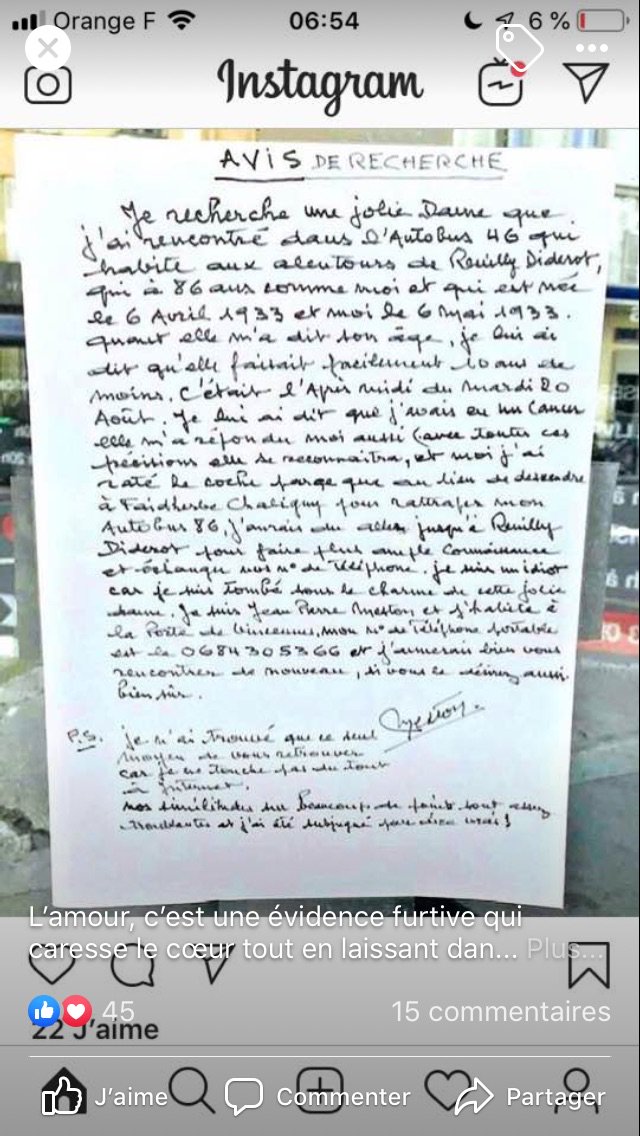 Orange F 06:54 6 %
Instagram
AVIS DE RECHERCHE
Je recherche une jolie Dame que
j'ai rencontré dans l'Autobus 46 qui
habite aux alentours de Reuilly Diderot,
qui à 86 ans comme moi et qui est née
le 6 Avril 1933 et moi le 6 mai 1933.
quant elle m'a dit son âge, je lui ai
dit qu'elle faisait facilement 10 ans de
moins. C'était l'Après midi du mardi 20
Août. Je lui ai dit que j'avais eu un Cancer
elle m'a répondu moi aussi (avec toutes ces
précisions elle se reconnaitra, et moi j'ai
raté le coche parce que au lieu de descendre
à Faidherbe Chaligny pour rattraper mon
Autobus 86, j'aurais du aller jusqu'à Reuilly
Diderot pour faire plus ample Connaissance
et échanger nos n° de Téléphone. je suis un idiot
car je suis tombé sous le charme de cette jolie
dame. Je suis Jean Pierre et j'habite à
la Porte de Vincennes, mon N° de Téléphone portable
est le 0684305366 et j'aimerais bien vous
rencontrer de nouveau, si vous le désirez aussi
bien sûr.
P.S. je n'ai trouvé que ce seul
moyen de vous retrouver
car je ne touche pas du tout
à Internet.
nos similitudes sur Beaucoup de point sont assez
troublantes et j'ai été subjugué
L'amour, c'est une évidence furtive qui
caresse le cœur tout en laissant dan... Plus...
45 15 commentaires
22 J'aime
J'aime Commenter Partager